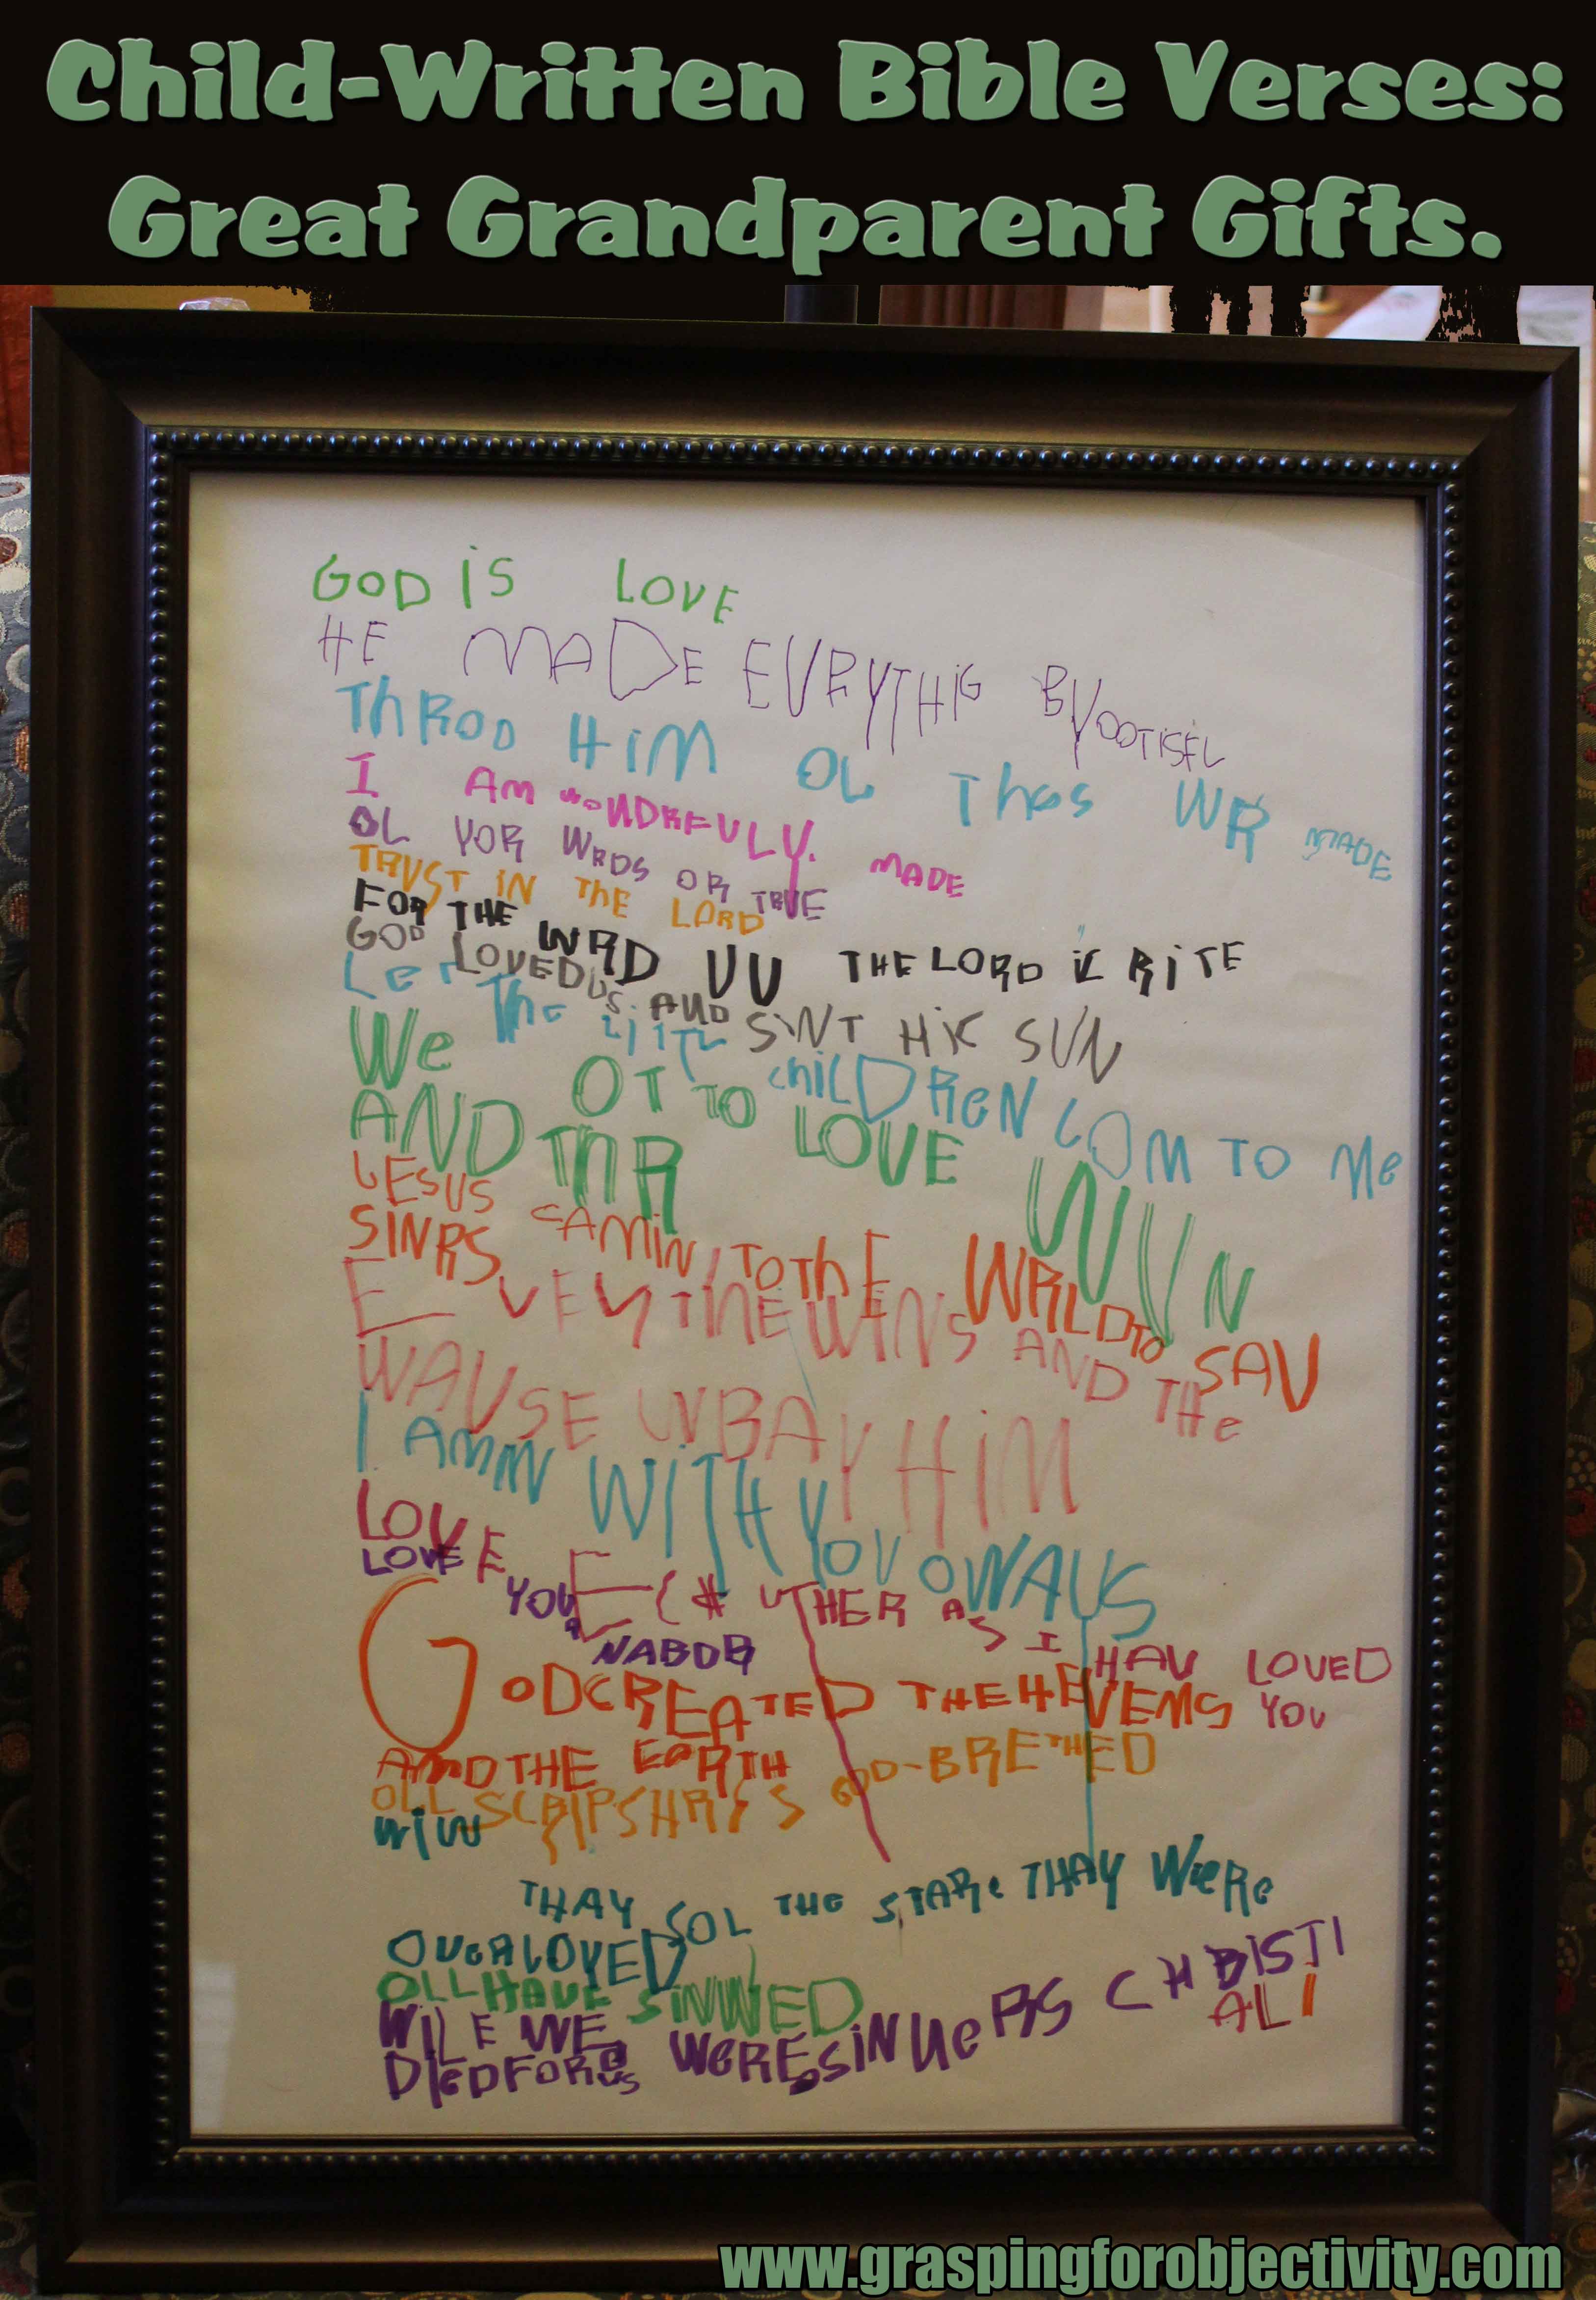 Child-Written Bible Verses:
Great Grandparent Gifts.
GOD iS LOVE
HE MADE EVRYTHiG BYOOTISFL
ThROD HiM OL Thos WR MADE
I AM WONDRFULY. MADE
OL YOR WRDS OR TRUE
TRUST IN ThE LORD
FOR THE WRD UV THE LORD iS RiTE
GOD LOVED US AND SiNT HiS SUN
LeT The LiTTL chiLDReN COM TO Me
We OT TO LOVE WUN
AND ThR
JESUS CAMIN TO ThE WRLD TO SAV
SINRS
EVEN THE WINS AND THe
WAVSE WBAY HiM
I AMM WITH YOU OWAYS
LOVE UTHER AS I HAV LOVED
YOU
LOVE YOUR NABOR
GOD CREATED THE HEVEMS
AND THE EARTH
OLL SCRIPSHR iS GOD-BRETHED
WiW
THAY SOL THe STAR THAY WeRe
OVeRLOYED
OLL HAVE SiNNED
WILE WE WeRE SiNNeRS CHRIST
DIeD FOR US
ALI
www.graspingforobjectivity.com